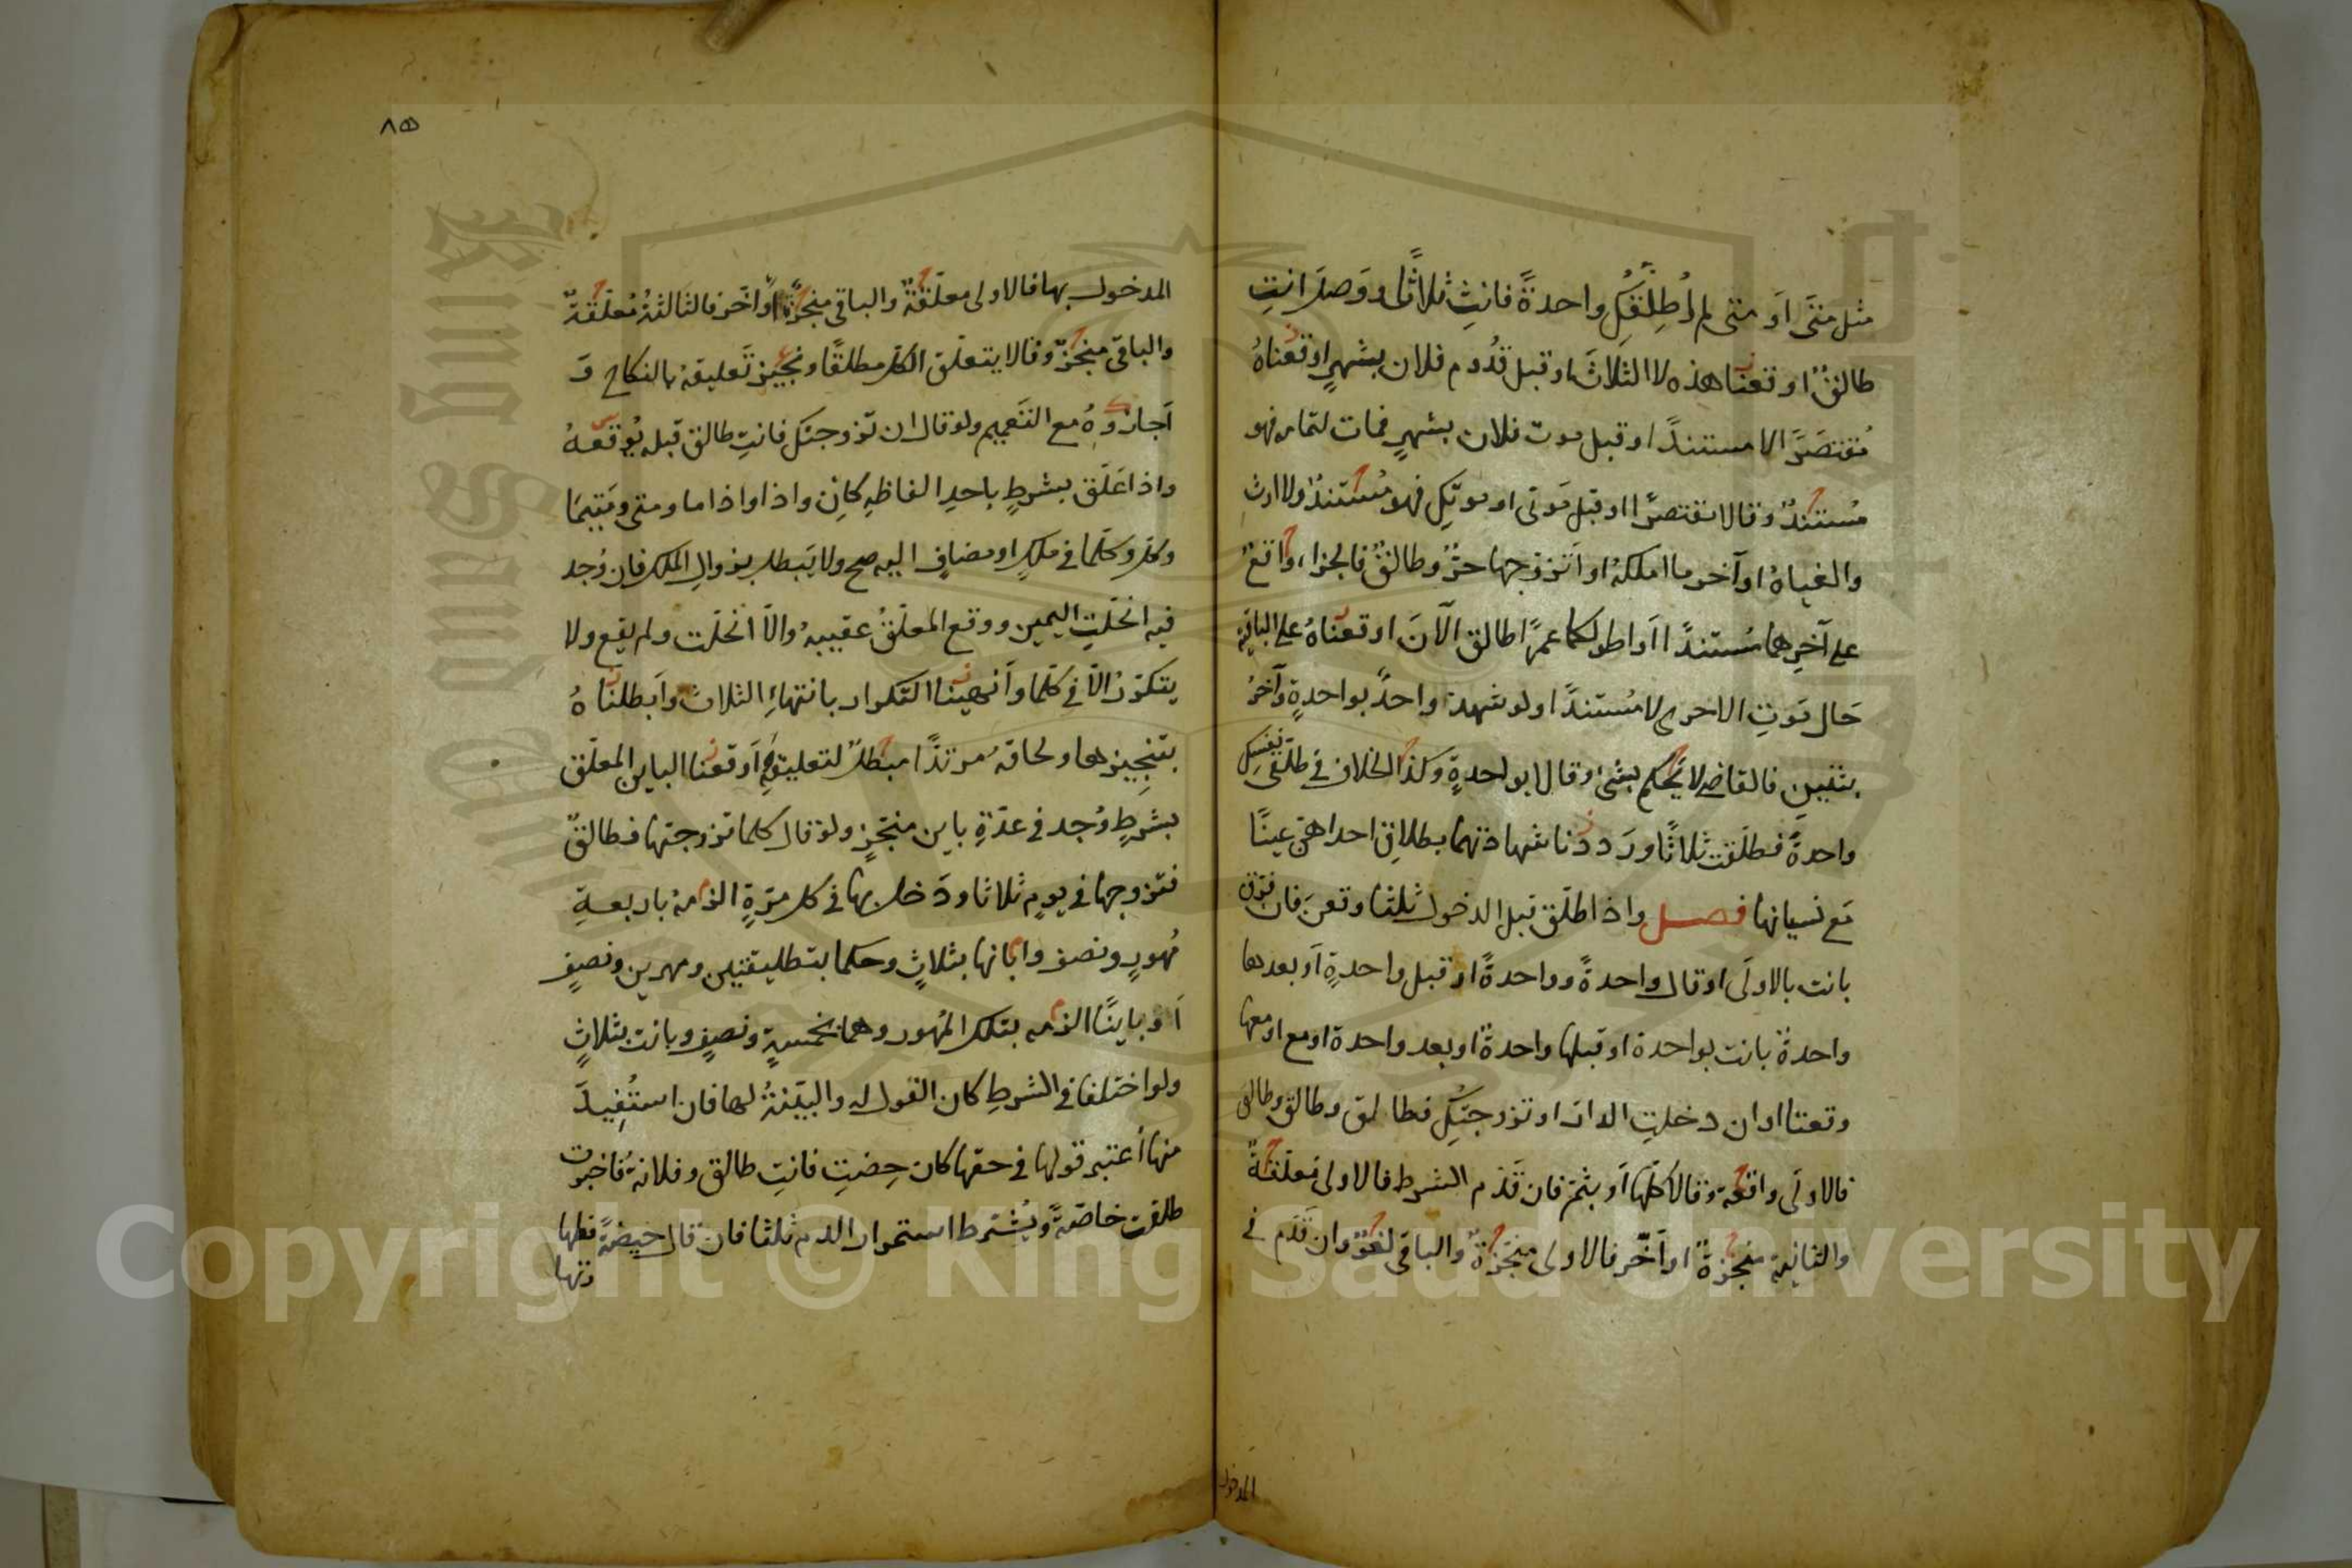 مثل متى او متى لم اُطلِّقكِ واحدةً فانتِ ثلاثًا ووصل انتِ
طالقٌ اوقعنا هذه لا الثلاثَ او قبل قدُوم فلان بشهرٍ اوقعناهُ
مُقتصَرًا لا مستندًا او قبل موت فلان بشهرٍ فمات لتمامه فهو
مُستندٌ وقالا مقتصرًا او قبل مَوتى او موتِكِ فهو مُستندٌ ولا ارث
والغياهُ او آخر ما املكهُ او اَتزوّجها حرٌّ وطالقٌ فالجزاء واقعٌ
على آخرِهما مُستندًا او اطولكما عمرًا طالق الآنَ اوقعناهُ على الباقية
حَال مَوتِ الاخرى لا مُستندًا ولو شهد واحدٌ بواحدةٍ وآخرُ
بثنتينِ فالقاضى لا يَحكم بشئ وقالا بواحدةٍ وكذا الخلاف فى طلّقى نفسكِ
واحدةً فطلّقت ثلاثًا ورَددنا شهادتهما بطلاقِ احداهنّ عينًا
مَع نسيانها فصـل واذا طلّق قبل الدخول ثلثا وقعنَ فان فرّق
بانت بالاولَى او قال واحدةً وواحدةً او قبل واحدةٍ اَو بعدها
واحدةٌ بانت بواحدة او قبلها واحدةٌ او بعد واحدة او مع او معها
وقعتا او ان دخلتِ الدار او تزوجتكِ فطالق وطالق وطالق
فالاولَى واقعة وقالا كلّها اَو بثمّ فان قدّم الشرط فالاولى مُعلّقةٌ
والثانية منجزةٌ او اَخّر فالاولى منجّزةٌ والباقى لغوٌ وان قدّم فى
المدخول
٨٥
المدخول بها فالاولى معلّقةٌ والباقى منجزٌ او اَخّر فالثالثةُ مُعلّقةٌ
والباقى منجزٌ وقالا يتعلّق الكل مطلقًا ونجيز تَعليقهُ بالنكاح و
اَجازوهُ مع التعميم ولو قال ان تزوجتكِ فانتِ طالق قبله يُوقعهُ
واذا عَلّق بشرطٍ باحدِ الفاظهِ كاِن واذا واذاما ومتى ومَتيمَا
وكل وكلّما فى ملكٍ او مضافٍ اليه صح ولا يَبطل بزوالِ الملك فان وُجد
فيه انحلّتِ اليمين ووقع المعلّقُ عقيبهُ والاّ انحلّت ولم يقع ولا
يتكرّرُ الاّ فى كلّما وانهينا التكرار بانتهاءِ الثلاث وابطلناهُ
بتنجيزها ولحاقهُ مرتدًا مبطلٌ لتعليقهِ اوقعنا الباين المعلّق
بشرطٍ وُجد فى عدّةِ باين منجّزٍ ولو قال كلما تزوجتها فطالقٌ
فتزوجها فى يومٍ ثلاثا ودَخل بها فى كل مرّةٍ الزمهُ باربعةِ
مُهورٍ ونصف وابانها بثلاثٍ وحكما بتطليقتين ومهرين ونصفٍ
اَو باينًا الزمه بتلك المُهور وهما بخمسةٍ ونصفٍ وبانت بثلاثٍ
ولو اختلفا فى الشرطِ كان القول له والبيّنةُ لها فان استُفيدَ
منها اُعتبر قولها فى حقها كان حِضتِ فانتِ طالق وفلانةُ فاخبرت
طلقت خاصّةً ويُشترط استمرار الدم ثلثا فان قال حيضةً فطهـا
دتها
Copyright © King Saud University